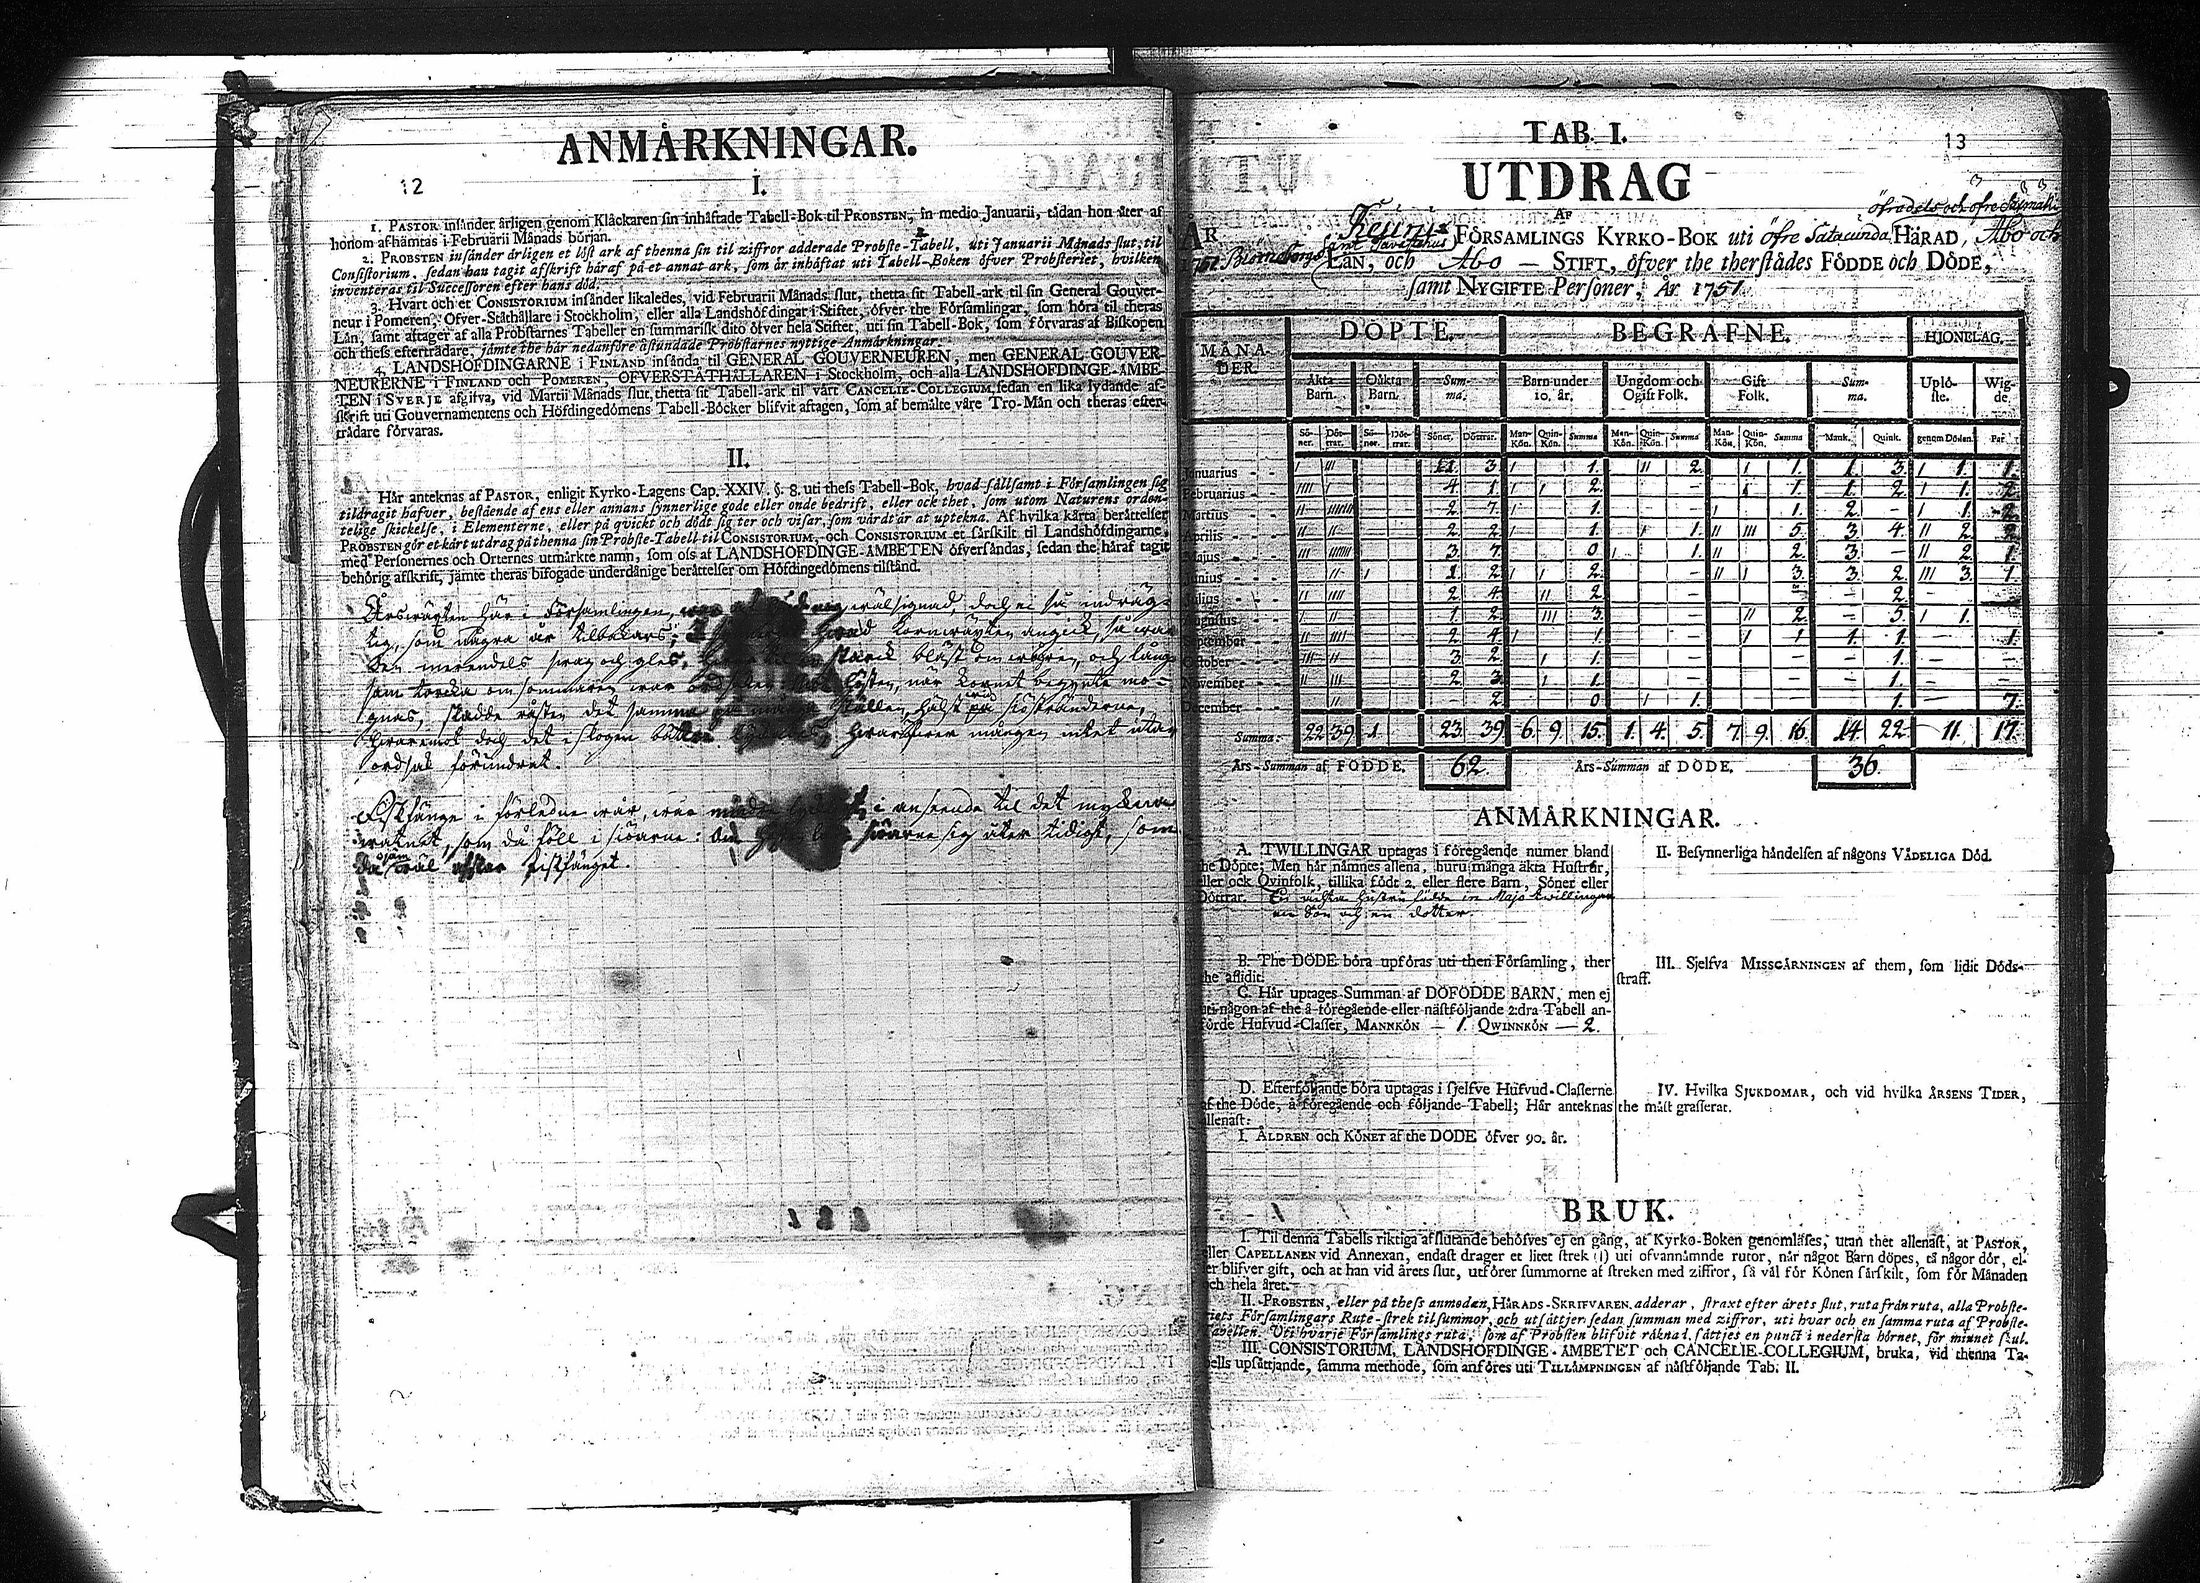 ANMÅRKNINGAR.
12
I.
1. PASTOR insånder årligen genom Klåckaren sin inhåftade Tabell-Bok til PROBSTEN, in medio Januarii, tådan hon åter af
honom afhåmtas i Februarii Månads början.
2. PROBSTEN insånder årligen et löst ark af thenna sin til ziffror adderade Probste-Tabell, uti Januarii Månads slut, til
Consistorium, sedan han tagit afskrift håraf på et annat ark, som år inhåftat uti Tabell-Boken öfver Probsteriet, hvilken
inventeras til Successoren efter hans död.
3. Hvart och et CONSISTORIUM insånder likaledes, vid Februarii Månads slut, thetta sit Tabell-ark til sin General Gouver-
neur i Pomeren, Öfver-Ståthållare i Stockholm, eller alla Landshöfdingar i Stiftet, öfver the Församlingar, som höra til theras
Lån, samt aftager af alla Probstarnes Tabeller en summarisk dito öfver hela Stiftet, uti sin Tabell-Bok, som förvaras af Biskopen
och thess eftertrådare, jåmte the hår nedanföre åstundade Probstarnes nyttige Anmårkningar.
4. LANDSHÖFDINGARNE i FINLAND insånda til GENERAL GOUVERNEUREN, men GENERAL GOUVER-
NEURERNE i FINLAND och POMEREN, ÖFVERSTÅTHÅLLAREN i Stockholm, och alla LANDSHÖFDINGE-ÅMBE-
TEN i SVERJE afgifva, vid Martii Månads slut, thetta sit Tabell-ark til vårt CANCELIE-COLLEGIUM, sedan en lika lydande af-
skrift uti Gouvernamentens och Höfdingedömens Tabell-Böcker blifvit aftagen, som af bemålte våre Tro-Mån och theras efter-
trådare förvaras.
II.
Hår anteknas af PASTOR, enligit Kyrko-Lagens Cap. XXIV. §. 8. uti thess Tabell-Bok, hvad sållsamt i Församlingen sig
tildragit hafver, bestående af ens eller annans synnerlige gode eller onde bedrift, eller ock thet, som utom Naturens orden-
telige skickelse, i Elementerne, eller på qvickt och dödt sig ter och visar, som vårdt år at uptekna. Af hvilka kårta beråttelser
PROBSTEN gör et kårt utdrag på thenna sin Probste-Tabell til CONSISTORIUM, och CONSISTORIUM et sårskilt til Landshöfdingarne,
med Personernes och Orternes utmårkte namn, som oss af LANDSHÖFDINGE-ÅMBETEN öfversåndas, sedan the håraf tagit
behörig afskrift, jåmte theras bifogade underdånige beråttelser om Höfdingedömens tilstånd.
Årswäxten här i Församlingen, wälsignad, doch ej så indräg-
tig, som några år tilbakars: hwad kornwäxten angick, så war
den merendels swag och gles, starck blåst om wåren, och lång-
sam torcka om sommaren war kornet begynte mo-
gnas, skadde råsten det samma på många ställen, hälst wid siöstränderne,
hwaremot doch det i skogen mången icke utan
ordsak förundrat.
Fiskfänge i förledne wår, war i anseende til det myckna
watnet, som då föll i siöarne: siöarne sig åter tidigt, som
fiskfänget.
TAB. I.
13
UTDRAG
AF
öfradels och öfre
ÅR Keuru FÖRSAMLINGS KYRKO-BOK uti öfre Satacunda HÅRAD, Åbo och
1751 Biörneborgs samt Tavastehus LÅN, och Abo — STIFT, öfver the therstådes FÖDDE och DÖDE,
samt NYGIFTE Personer, År 1751
MÅNA-DER. DÖPTE. BEGRAFNE. HJONELAG.
Åkta Barn. Oåkta Barn. Sum-ma. Barn under 10. år. Ungdom och Ogift Folk. Gift Folk. Sum-ma. Uplö-ste. Wig-de.
Sö-ner. Döt-trar. Sö-ner. Döt-trar. Söner. Döttrar. Man-Kön. Quin-Kön. Summa Man-Kön. Quin-Kön. Summa Man-Kön. Quin-Kön. Summa Mank. Quink. genom Döden. Par
Januarius - - I III 1. 3. I 1. II 2. I 1. 1. 3. I 1. 1.
Februarius - - IIII I 4. 1. I I 2. - I 1. 1. 2. I 1. 2.
Martius - - II IIIIIII 2. 7. I 1. - I 1. 2. - I 1. 2.
Aprilis - - II II 2. 2. I 1. I 1. II III 5. 3. 4. II 2. 2.
Majus - - III IIIIIII 3. 7. 0. I 1. II 2. 3. - II 2. 1.
Junius - - II I 1. 2. I I 2. - II I 3. 3. 2. III 3. 1.
Julius - - II IIII 2. 4. II 2. - - 2. -
Augustus - - I II 1. 2. III 3. - II 2. - 5. I 1.
September - - II IIII 2. 4. I 1. - I 1 1. 1. - 1.
October - - III II 3. 2. I 1. - - - 1. -
November - - II III 2. 3. I 1. - - - 1. -
December - - II - 2. 0. I 1. - - 1. - 7.
Summa: 22 39 1. 23. 39 6. 9. 15. 1. 4. 5. 7. 9. 16. 14. 22. 11. 17.
Års-Summan af FÖDDE. 62. Års-Summan af DÖDE. 36.
ANMÅRKNINGAR.
A. TWILLINGAR uptagas i föregående numer bland
the Döpte; Men hår nåmnes allena, huru många åkta Hustrår,
eller ock Qvinfolk, tillika födt 2. eller flere Barn, Söner eller
Döttrar. En ächta hustru födde in Majo twillingar
en Son och en dotter.
B. The DÖDE böra upföras uti then Församling, ther
the aflidit.
C. Hår uptages Summan af DÖFÖDDE BARN, men ej
uti någon af the å föregående eller nåstföljande 2:dra Tabell an-
förde Hufvud-Classer, MANNKÖN — 1. QWINNKÖN — 2.
D. Efterföljande böra uptagas i sjelfve Hufvud-Classerne
af the Döde, å föregående och följande Tabell; Hår anteknas
allenast:
I. ÅLDREN och KÖNET af the DÖDE öfver 90. år.
II. Besynnerliga håndelsen af någons VÅDELIGA Död.
III. Sjelfva MISSGÅRNINGEN af them, som lidit Döds-
straff.
IV. Hvilka SJUKDOMAR, och vid hvilka ÅRSENS TIDER,
the måst grasserat.
BRUK.
I. Til denna Tabells riktiga afslutande behöfves ej en gång, at Kyrko-Boken genomlåses, utan thet allenast, at PASTOR,
eller CAPELLANEN vid Annexan, endast drager et litet strek (1) uti ofvannåmnde rutor, når något Barn döpes, tå någor dör, el-
ler blifver gift, och at han vid årets slut, utförer summorne af streken med ziffror, så vål för Könen sårskilt, som för Månaden
och hela året.
II. PROBSTEN, eller på thess anmodan, HÅRADS-SKRIFVAREN adderar, straxt efter årets slut, ruta från ruta, alla Probste-
riets Församlingars Rute-strek til summor, och utsåttjer sedan summan med ziffror, uti hvar och en samma ruta af Probste-
Tabellen. Uti hvarje Församlings ruta, som af Probsten blifvit råknad, såttjes en punct i nedersta hörnet, för minnet skul.
III. CONSISTORIUM, LANDSHÖFDINGE-ÅMBETET och CANCELIE-COLLEGIUM, bruka, vid thenna Ta-
bells upsåttjande, samma methode, som anföres uti TILLÅMPNINGEN af nåstföljande Tab. II.